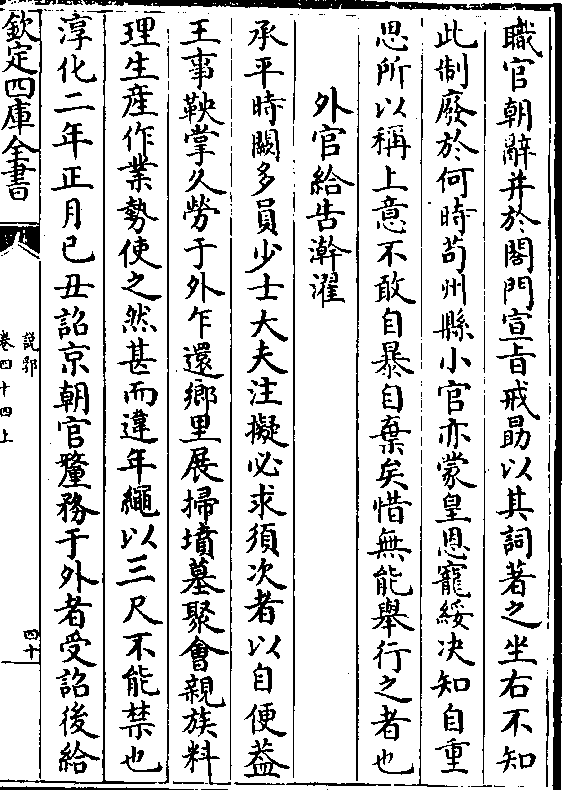 職官朝辭并於閤門宣㫖戒朂以其詞著之坐右不知
此制廢於何時茍州縣小官亦蒙皇恩寵綏决知自重
思所以稱上意不敢自暴自棄矣惜無能舉行之者也
外官給告澣濯
承平時闕多員少士大夫注擬必求須次者以自便葢
王事鞅掌久勞于外乍還鄉里展掃墳墓聚㑹親族料
理生産作業勢使之然甚而違年繩以三尺不能禁也
淳化二年正月已丑詔京朝官釐務于外者受詔後給
欽定四庫全書
説郛
卷四十四上
四十